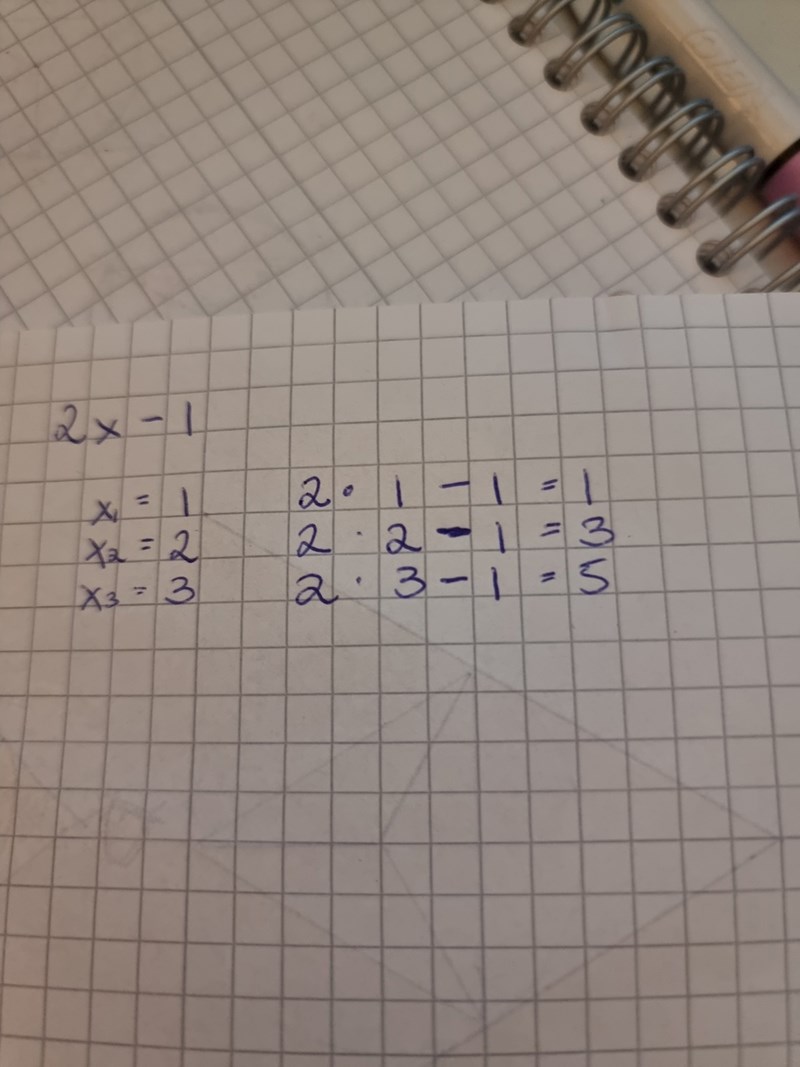 2x - 1
x₁ = 1 2 · 1 - 1 = 1
x₂ = 2 2 · 2 - 1 = 3
x₃ = 3 2 · 3 - 1 = 5